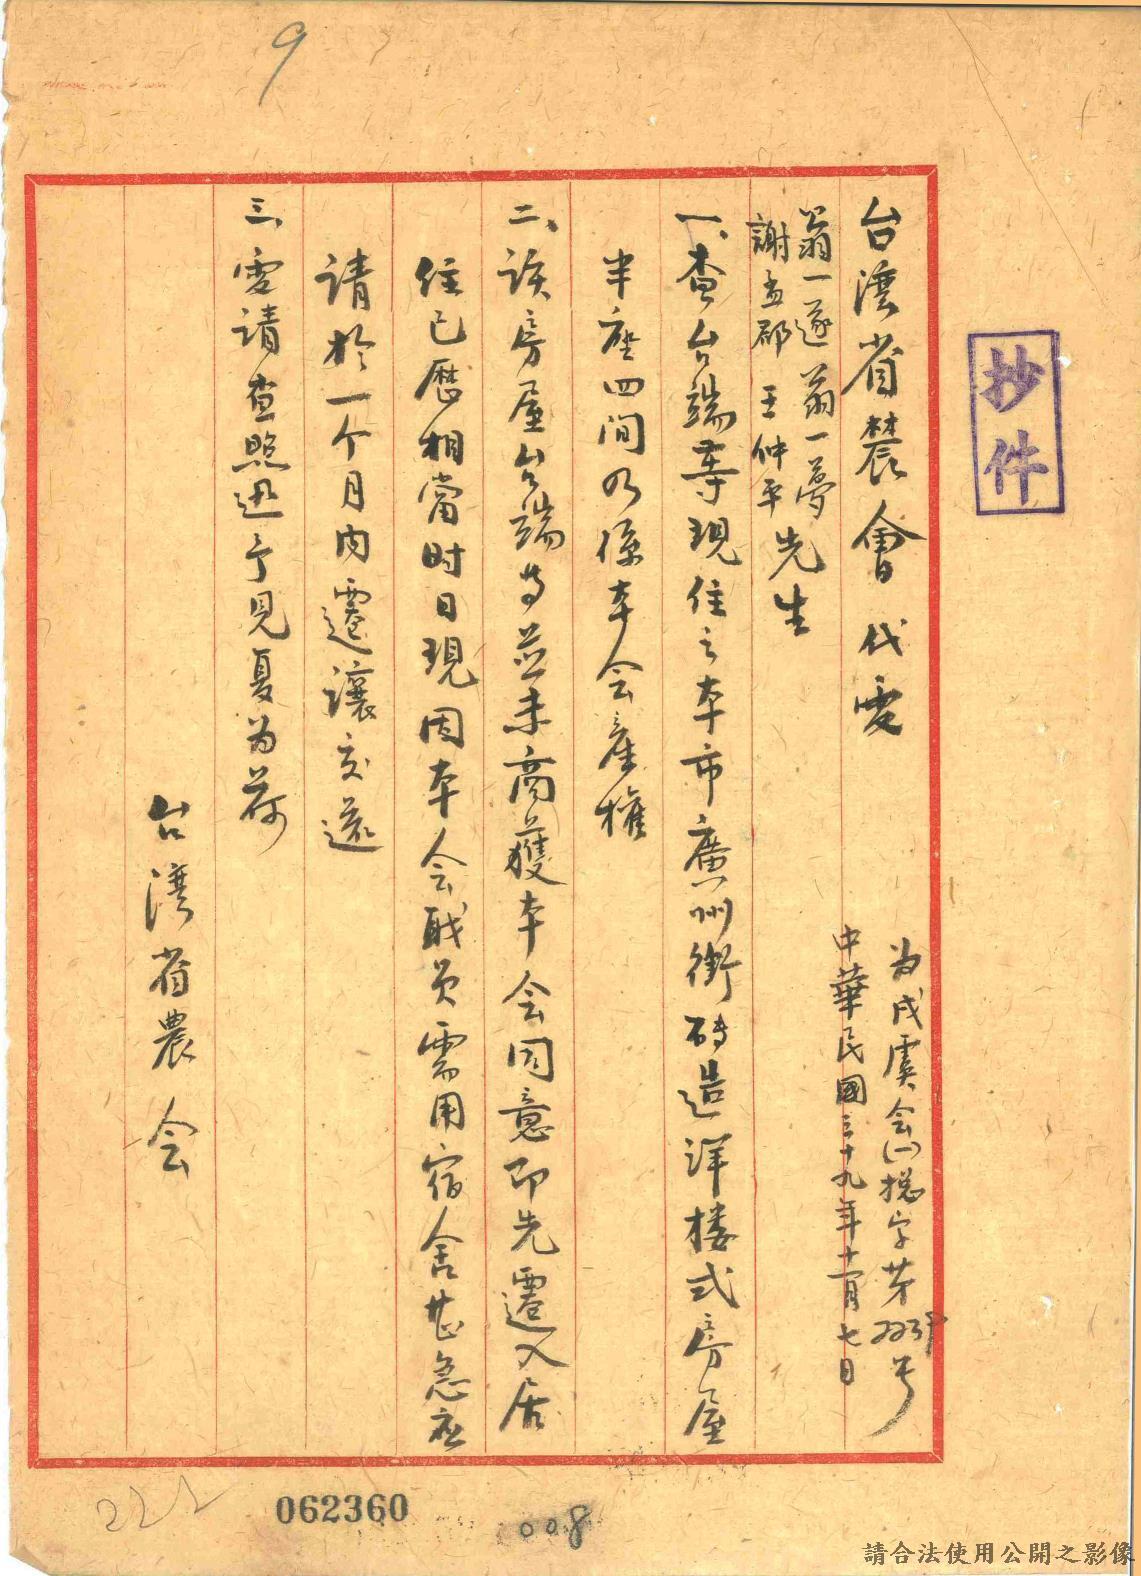 9
抄件
台灣省農會代電
为戌虞会(一)總字苐號号
中華民國三十九年十一月七日
翁一遂 翁一夢
謝孟郡 王仲平 先生
一、查台端等現住之本市廣州街磚造洋楼式房屋
半座四间乃係本会產權
二、該房屋台端等並未商獲本会同意即先遷入居
住已歷相當时日現因本会职员需用宿舍甚急应
请於一个月内遷讓交还
三、電請查照迅予見复为荷
台湾省農会
222
062360
008
請合法使用公開之影像